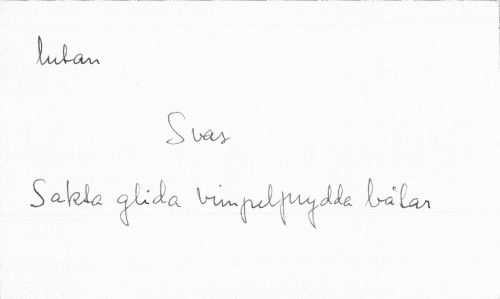 lutan
Svas
Sakta glida vimpelprydda båtar